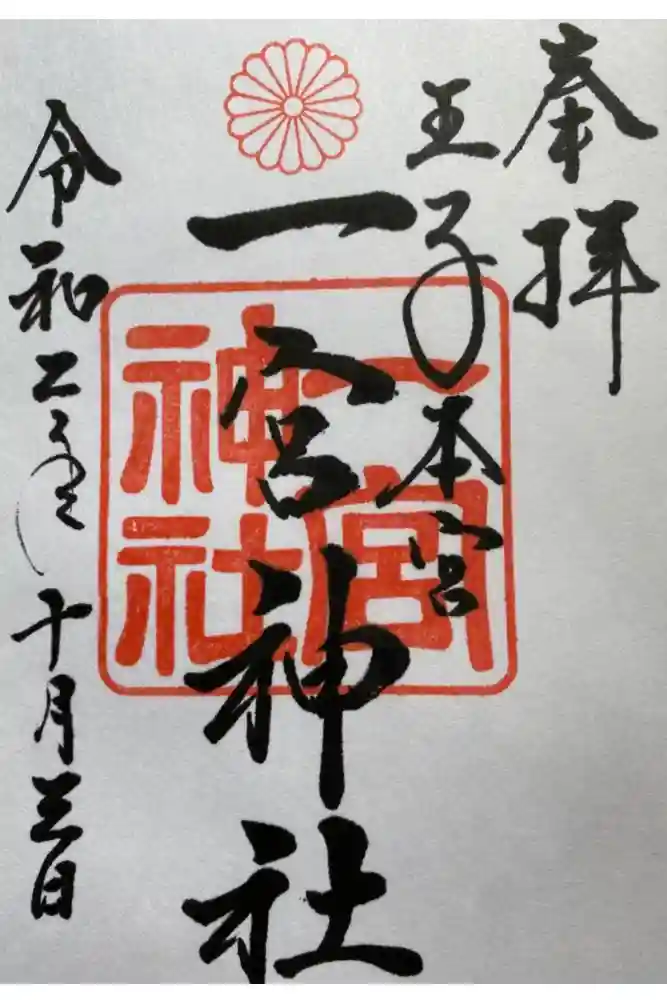 奉拝
王子本宮
一宮神社
一宮神社
令和二年十月三日